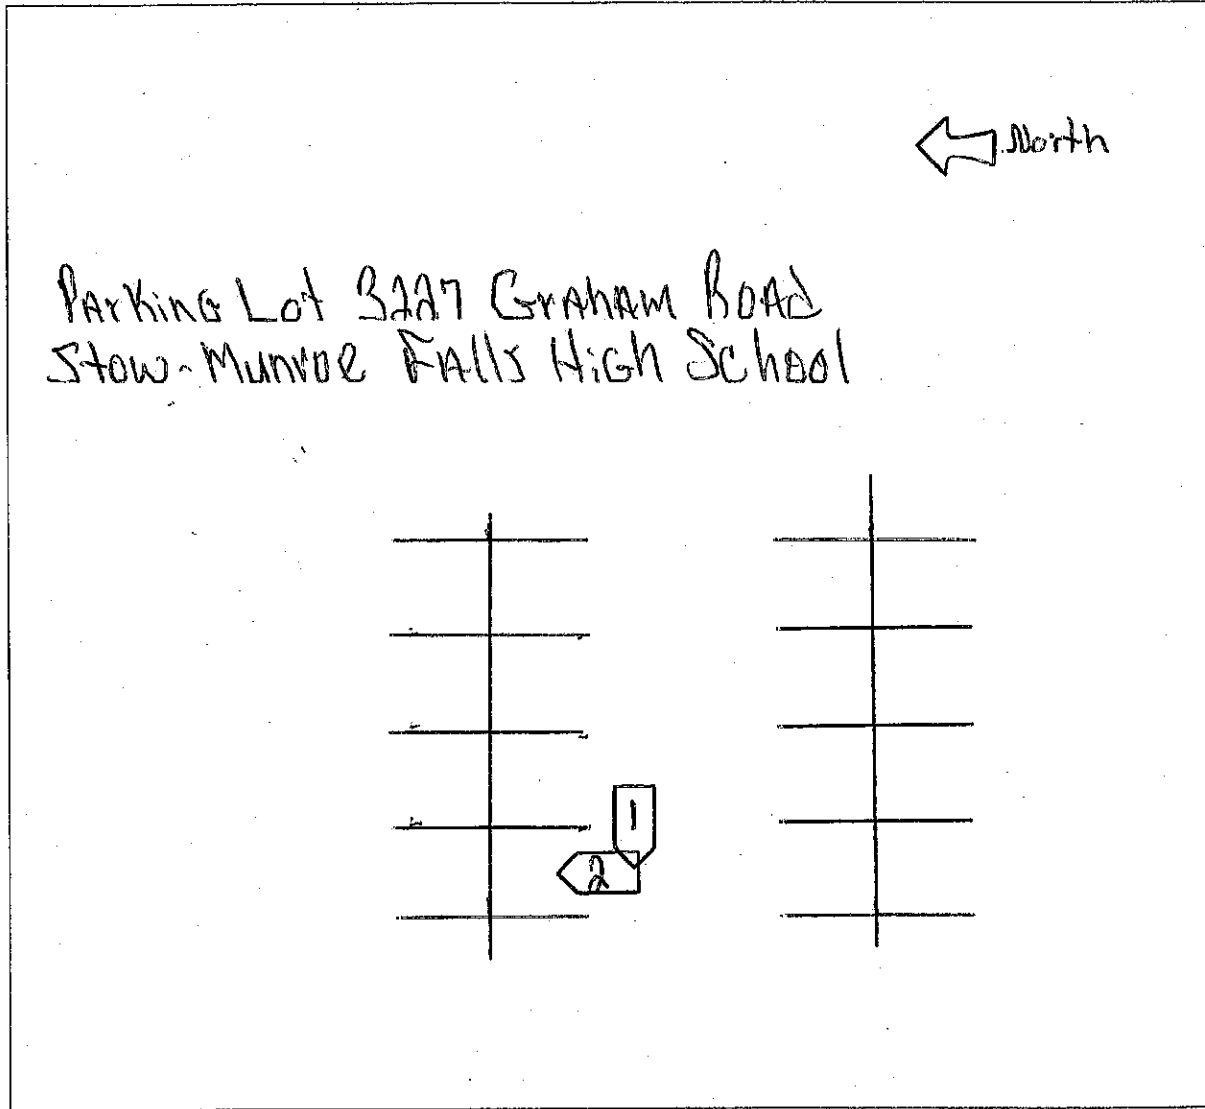 North
Parking Lot 3227 Graham Road
Stow-Munroe Falls High School
1
2